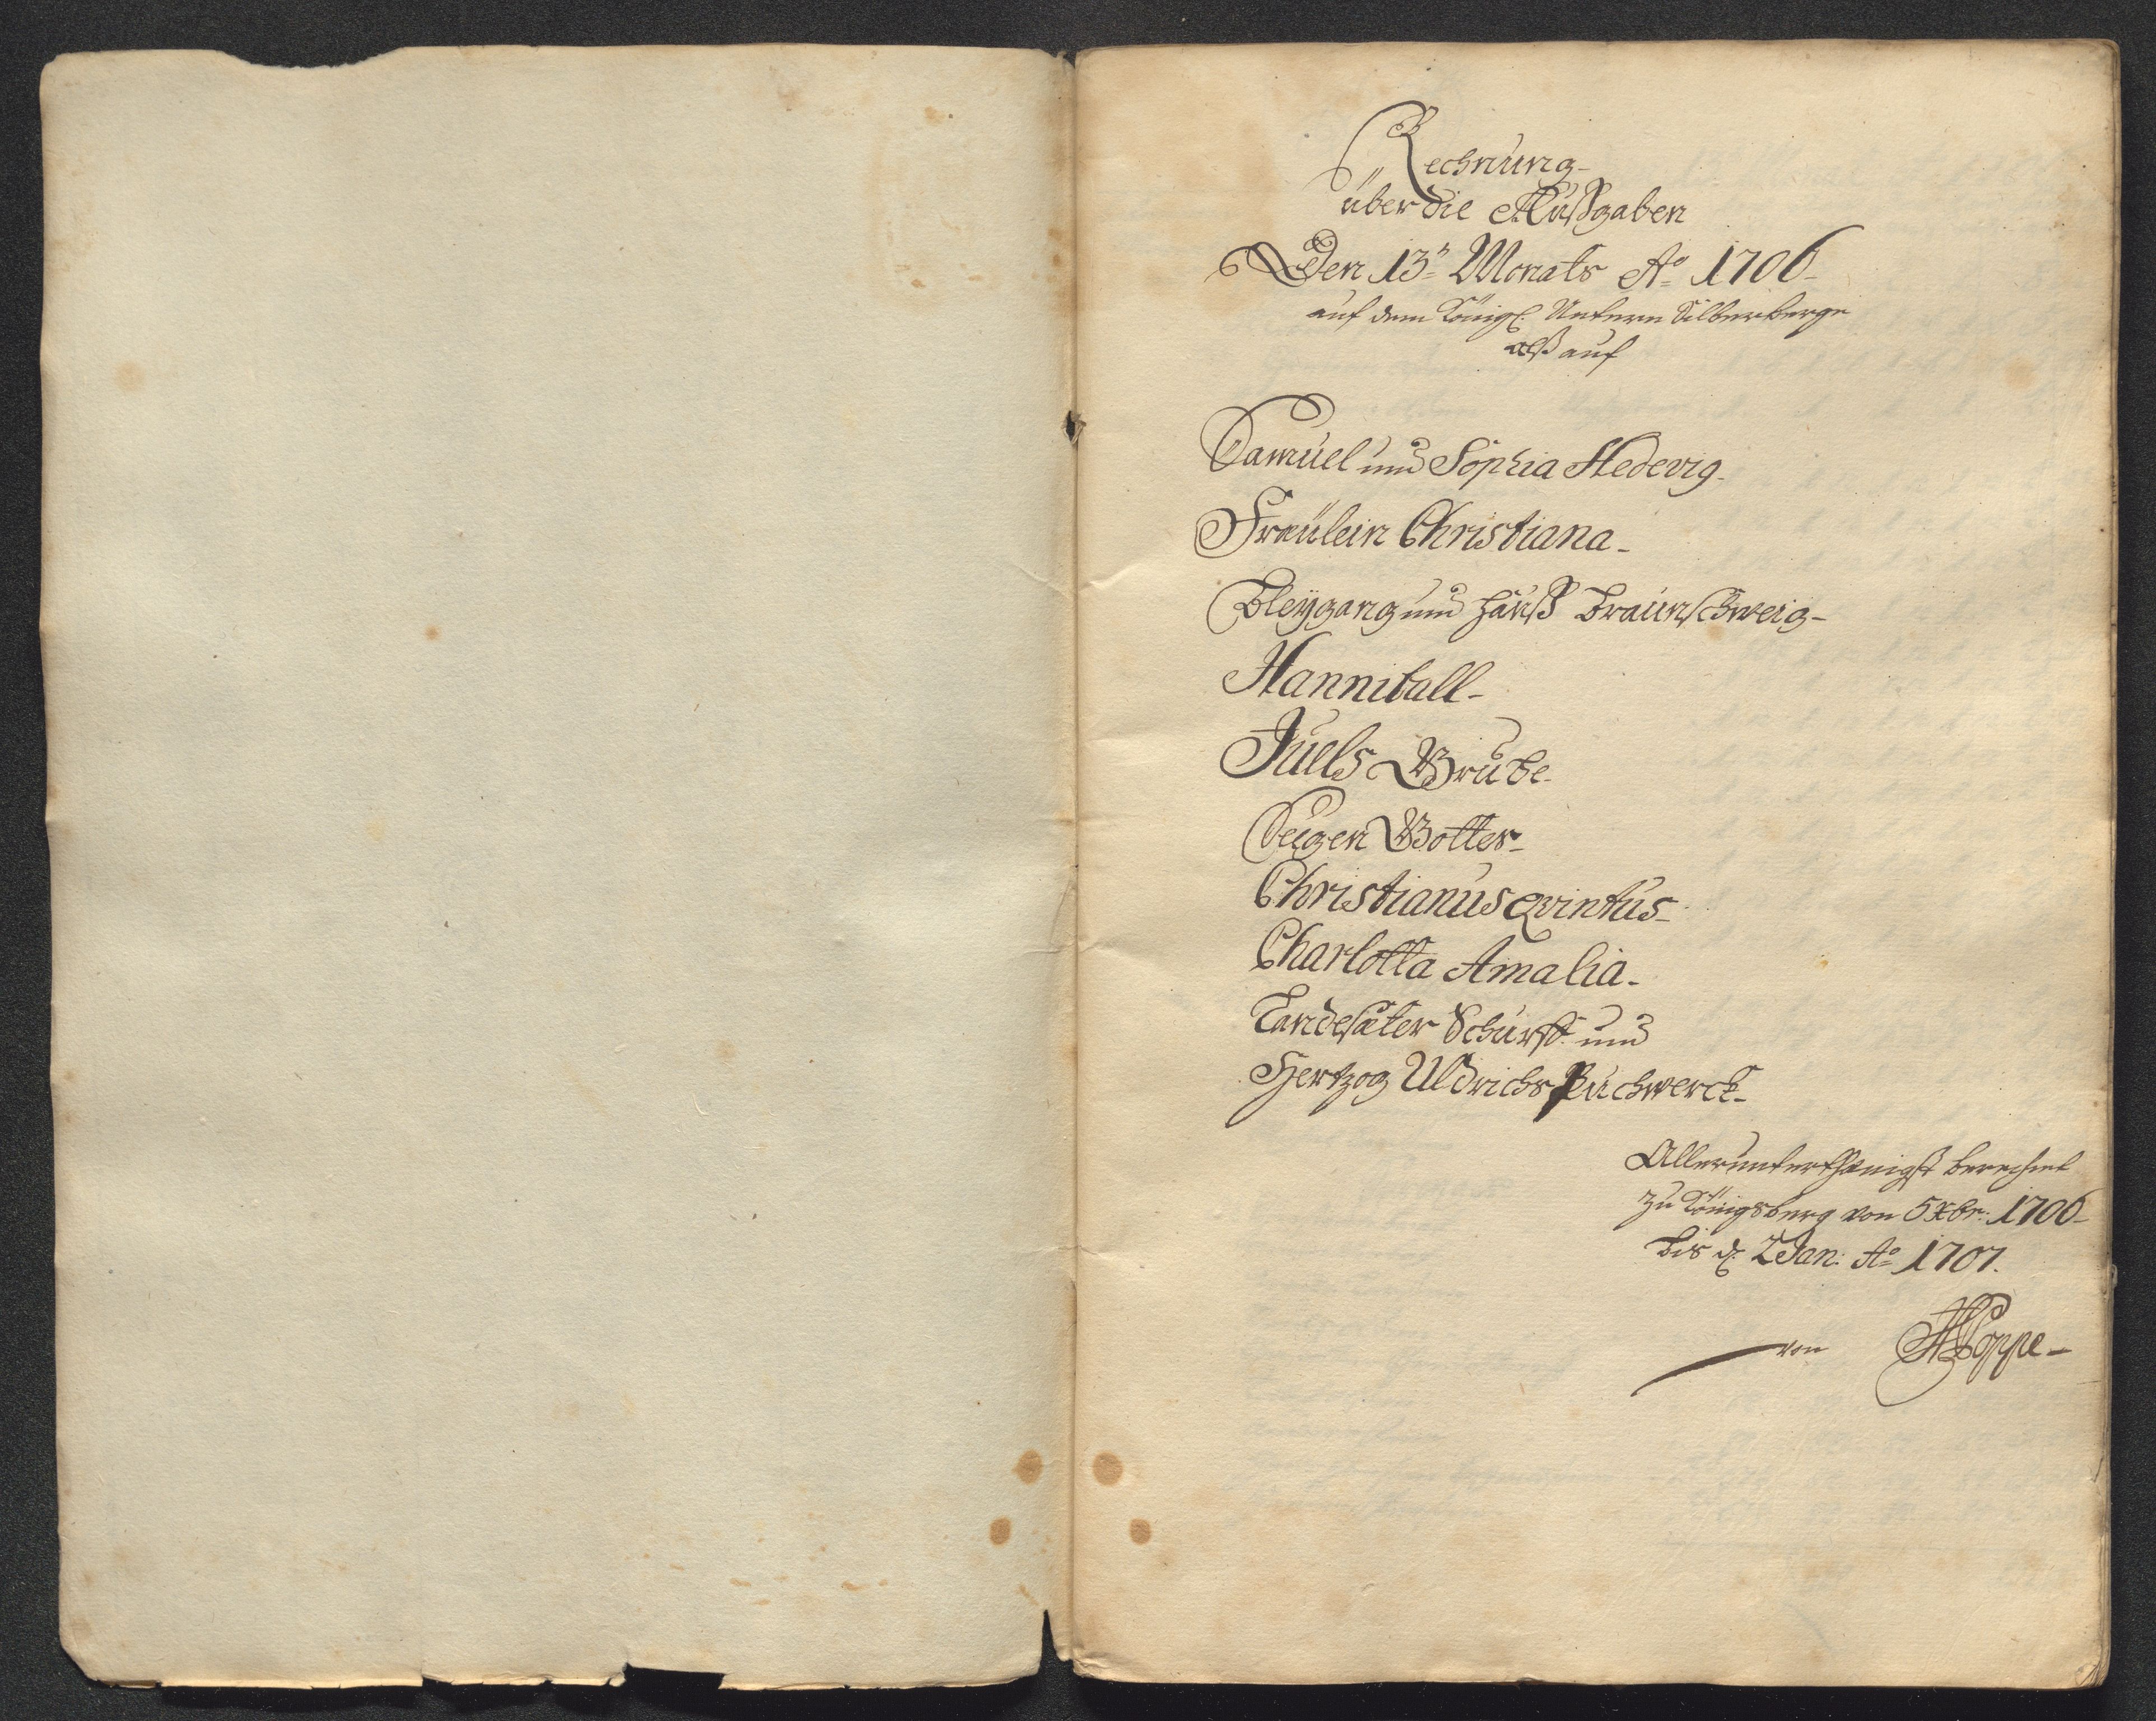 Rechnung
über die Außgaben
Den 13ⁿ Monats Aº 1706
auf dem Königl: Untern Silberberge
alß auf
Samuel und Sophia Hedevig
Fraülein Christiana
Bleÿgang und Hauß Braunschweig
Hanniball
Juels Grube
Seegen Gottes
Christianus Qvintus
Charlotta Amalia
Landesäter Schurff und
Hertzog Uldrichs Puchwerck
Allerunterthänigst berechnet
zu Königsberg von 5 Xbr: 1706
bis d. 2 Jan: Aº 1707.
von Poppe